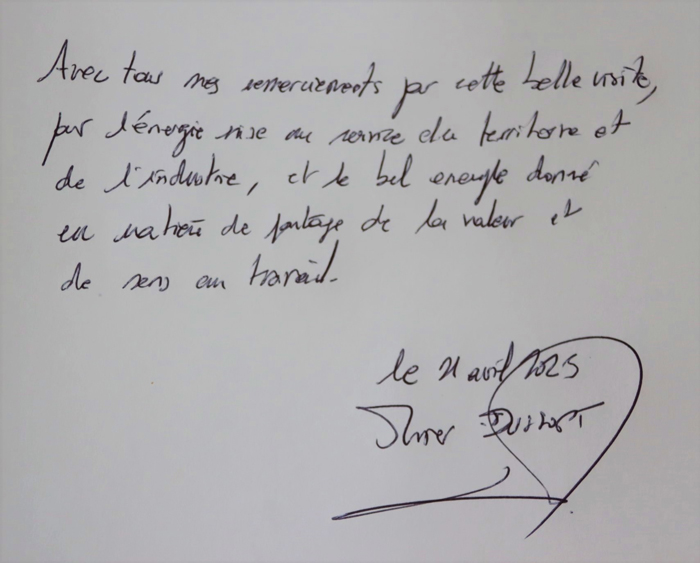 Avec tous mes remerciements pour cette belle visite,
pour l'énergie mise au service du territoire et
de l'industrie, et le bel exemple donné
en matière de partage de la valeur et
de sens au travail.
le 21 avril 2023
Olivier DUSSOPT